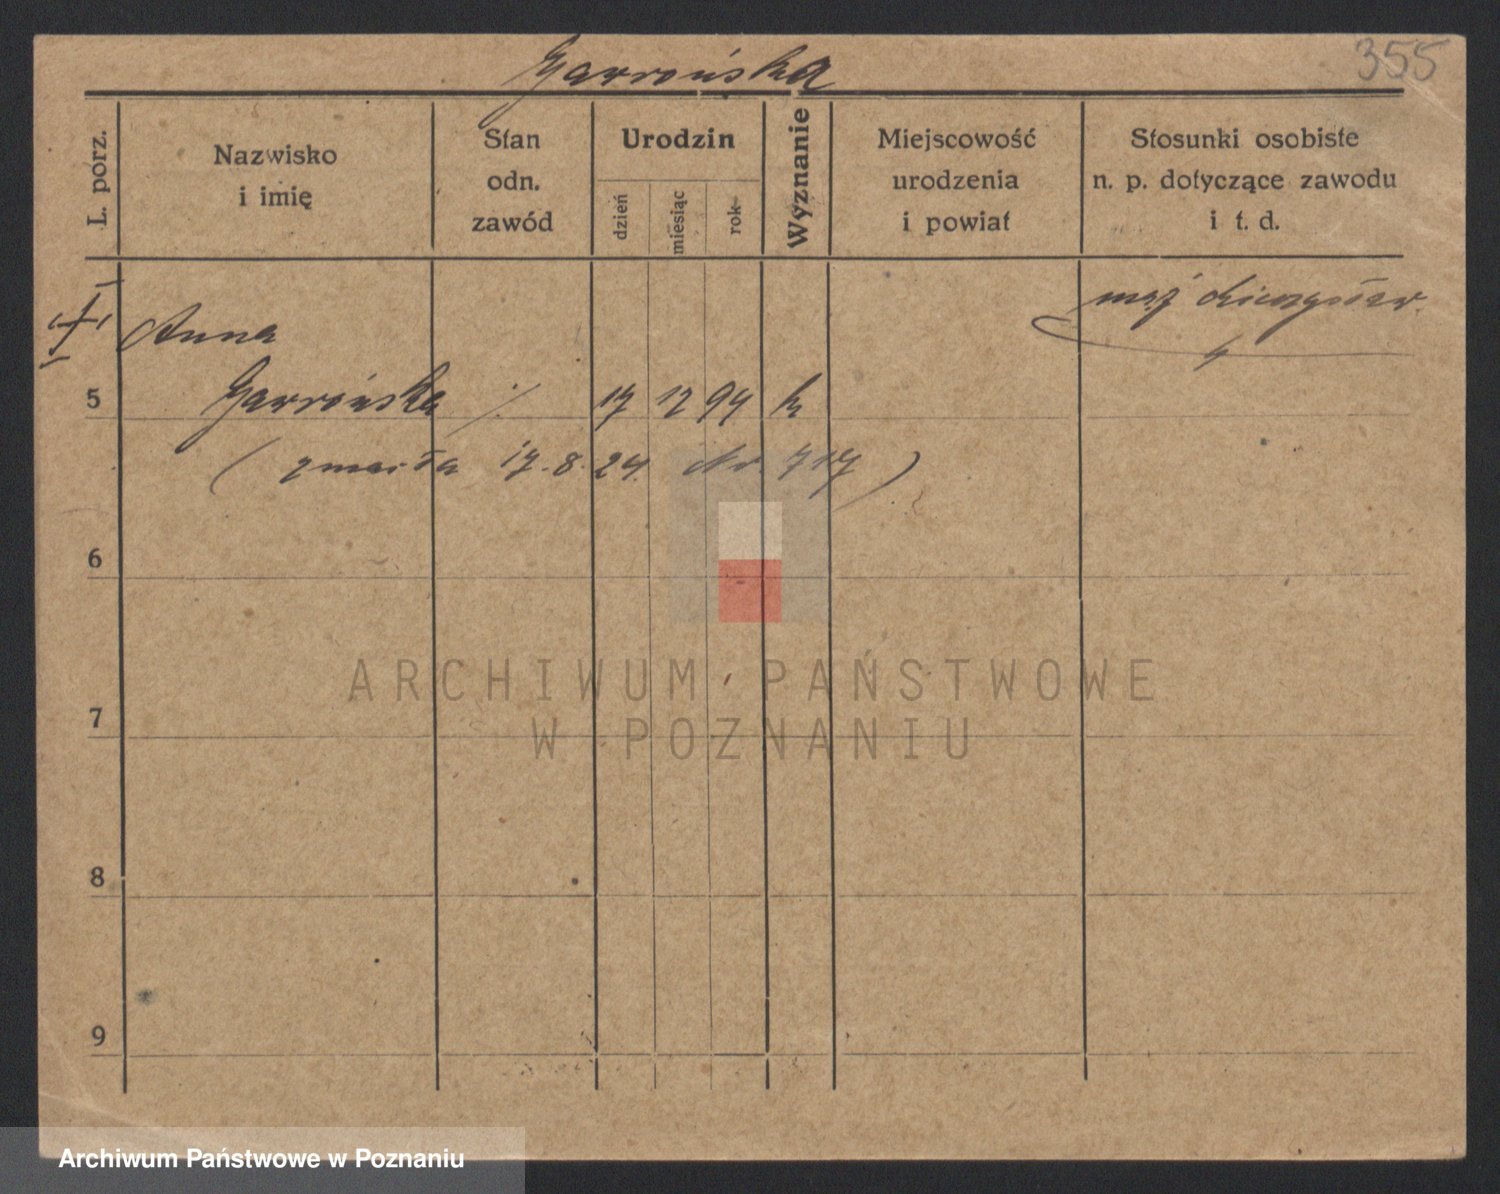 Gawrońska 355
L. porz.
Nazwisko
i imię
Stan
odn.
zawód
Urodzin
dzień
miesiąc
rok
Wyznanie
Miejscowość
urodzenia
i powiat
Stosunki osobiste
n. p. dotyczące zawodu
i t. d.
mąż
Anna
5 Gawrońska % 17 12 94 k
( zmarła 17.8.24. Nr 717 )
6
7
8
9
ARCHIWUM PAŃSTWOWE
W POZNANIU
Archiwum Państwowe w Poznaniu